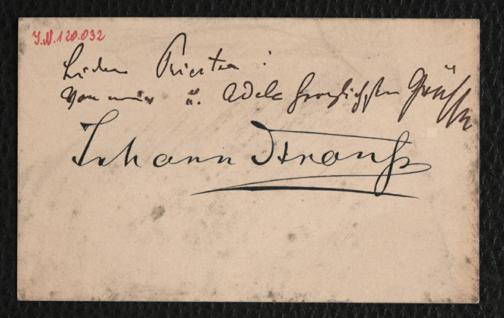 J.N. 120.032
Lieber Priester :
Von mir u. Adele herzlichsten Grüsse
Johann Strauss